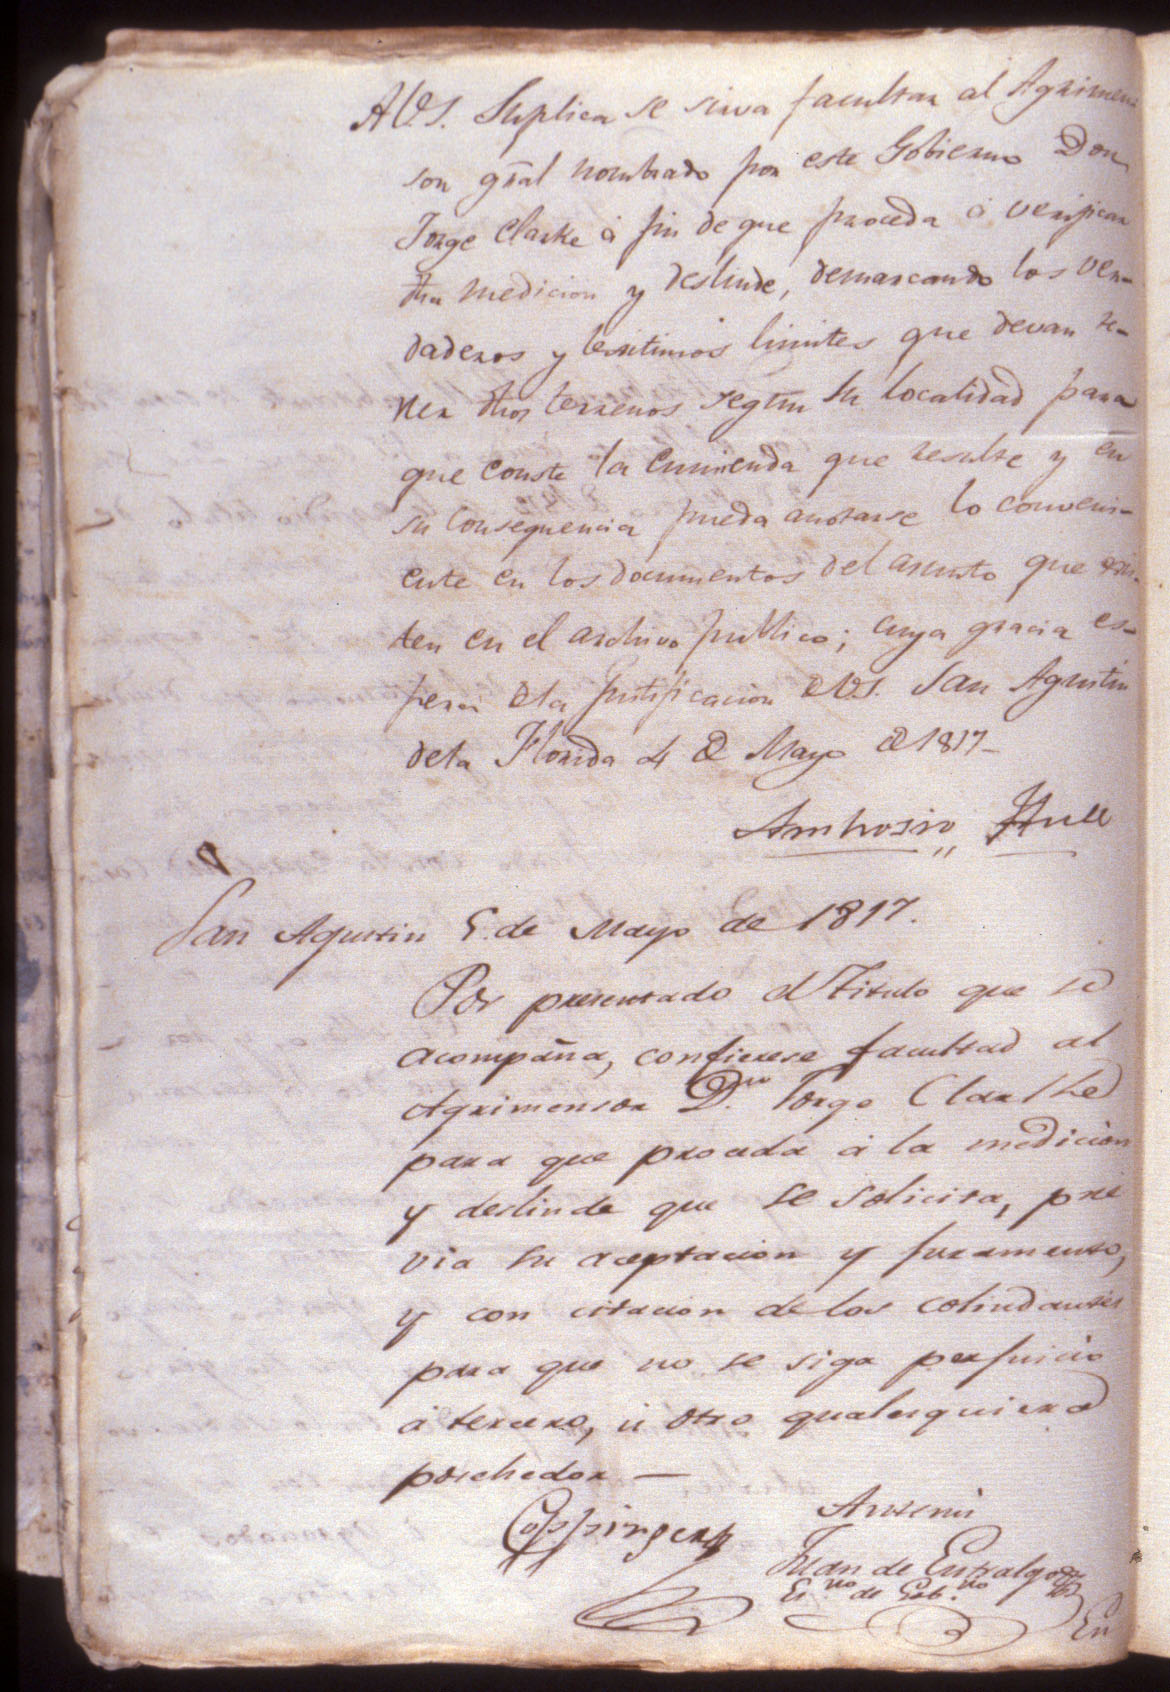 A V.S. Suplica se sirva facultar al Agrimen-
sor gral nombrado por este Gobierno Don
Jorge Clarke á fin de que proceda á verificar
dha medicion y deslinde, demarcando los ver-
daderos y lexitimos limites que devan te-
ner dhos terrenos segun su localidad para
que conste la enmienda que resulte y en
su consequencia pueda anotarse lo conveni-
ente en los documentos del asunto que exis-
ten en el archivo publico; cuya gracia es-
pera de la justificacion de V.S. San Agustin
de la Florida 4 de Mayo de 1817-
Ambrosio Hull
San Agustin 5. de Mayo de 1817.
Por presentado el Titulo que se
acompaña, confierese facultad al
Agrimensor D.n Jorge Clarke
para que proceda á la medicion
y deslinde que se solicita, pre
via su aceptacion y juramento,
y con citacion de los colindantes
para que no se siga perjuicio
á tercero, ú otro qualesquiera
posehedor —
Coppinger
Antemi
Juan de Entralgo
Es.no de Gob.no
En